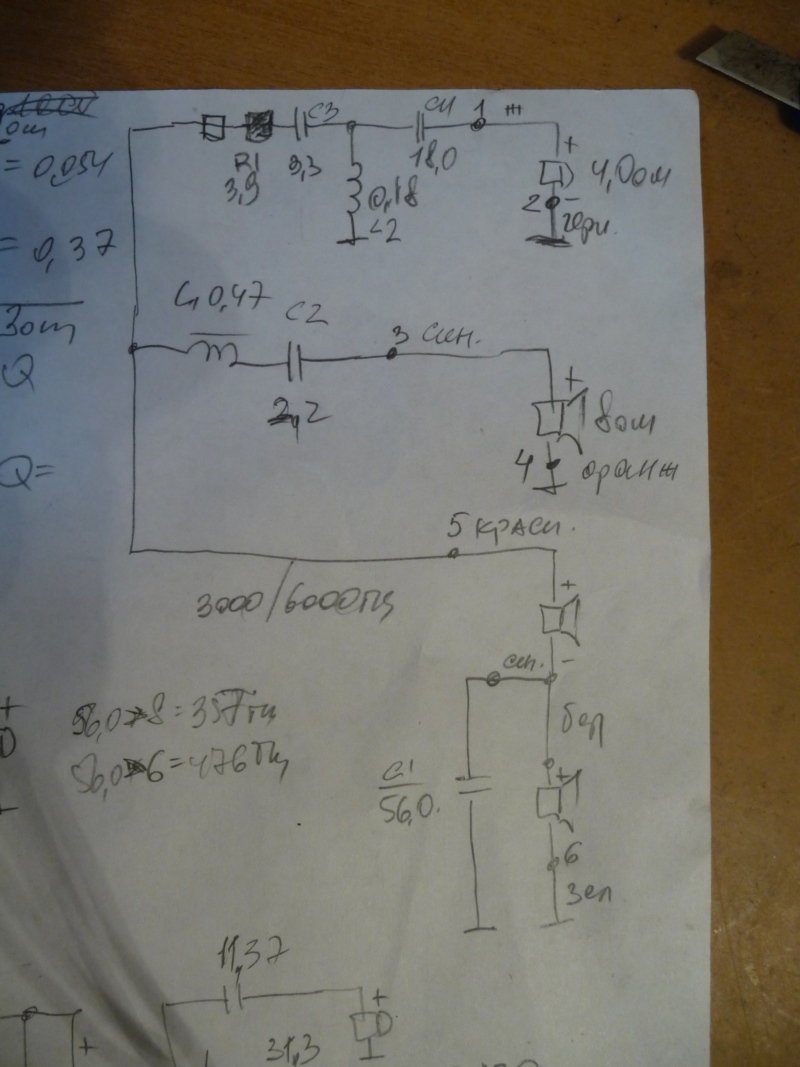 = 0,054
= 0,37
Зот
Q
Q=
C3
C4
1
ж
R1
3,9
3,3
18,0
+
4,0ом
0,18
L2
2
-
черн.
L1 0,47
C2
3 син.
2,2
+
8ом
4
оранж
5 красн.
3000/6000Гц
+
син.
-
56,0 > 8 = 357Гц
бел
56,0 > 6 = 476Гц
C1
56,0
+
6
зел
11,37
+
31,3
+